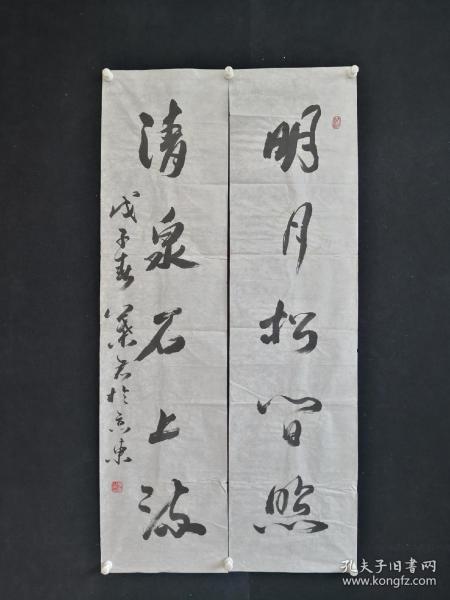 明月松间照
清泉石上流
戊子春
于京东
孔夫子旧书网
www.kongfz.com